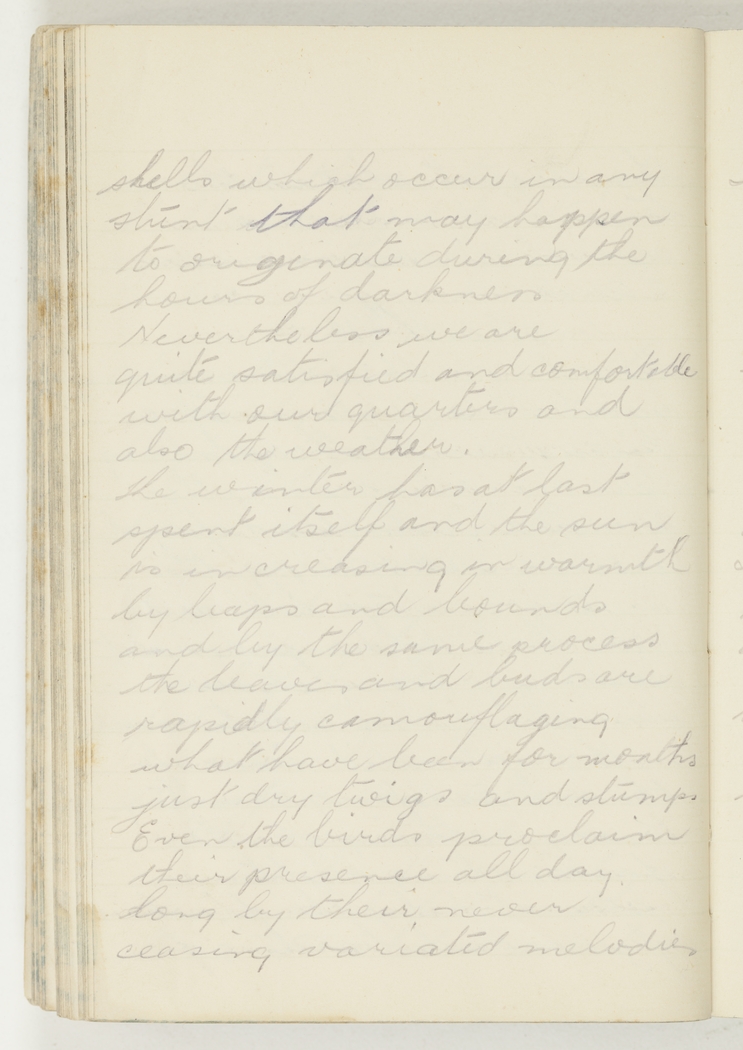 shells which occur in any
stunt that may happen
to originate during the
hours of darkness
Nevertheless we are
quite satisfied and comfortable
with our quarters and
also the weather.
the winter has at last
spent itself and the sun
is increasing in warmth
by leaps and bounds
and by the same process
the leaves and buds are
rapidly camouflaging
what have been for months
just dry twigs and stumps
Even the birds proclaim
their presence all day
long by their never
ceasing variated melodies